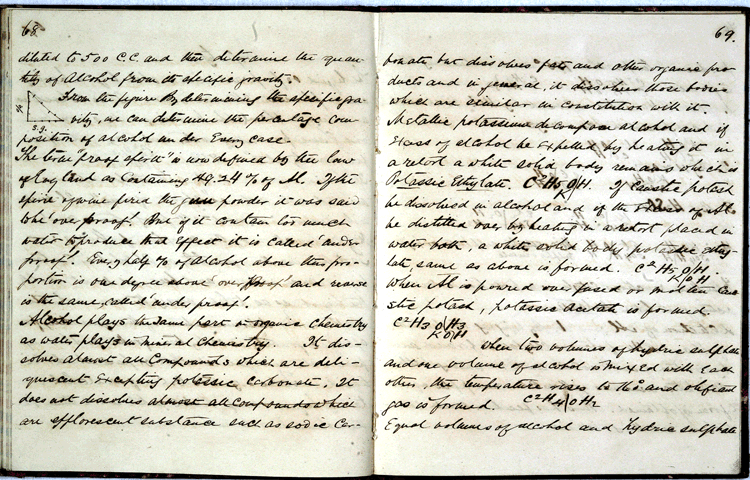 68.
diluted to 500 C.C. and then determine the quan-
tity of Alcohol from its specific gravity.
From the figure By determining the specific gra-
vity, we can determine the percentage com-
%
S.g.
position of alcohol under Every case.
The term "proof spirit" is now defined by the law
of England as containing 49.24 % of Al. If the
spirit of wine fired the gun powder it was said
to be 'over proof'. But if it contain too much
water to produce that effect it is called 'under
proof'. Every half % of Alcohol above this pro-
portion is one degree above 'over proof' and reverse
is the same, called 'under proof'.
Alcohol plays the same part in organic chemistry
as water plays in mineral chemistry. It dis-
solves almost all compounds which are deli-
quescent Excepting potassic carbonate. It
does not dissolves almost all compounds which
are efflorescent substance such as sodic Car-
69.
bonate, but dissolves fats and other organic pro
ducts and in general, it dissolves those bodies
which are similar in constitution with it.
Metallic potassium decompose alcohol and if
Excess of alcohol be Expelled by heating it in
a retort a white solid body remains which is
Potassic Ethylate. C2H5 O/H. If Caustic potash
K
be dissolved in alcohol and if the Excess of Al.
be distilled over by heating in a retort placed in
water bath, a white solid body, potassic ethy
late, same as above is formed. C2H5 O/H.
K O H
When Al is poured over fused or molten cau
stic potash, potassic acetate is formed.
C2H3 O\H3
K O\H
When two volumes of hydric sulphate
and one volume of alcohol is mixed with Each
other, the temperature rises to and olefiant
gas is formed. C2H4\OH2
Equal volumes of alcohol and hydric sulphate